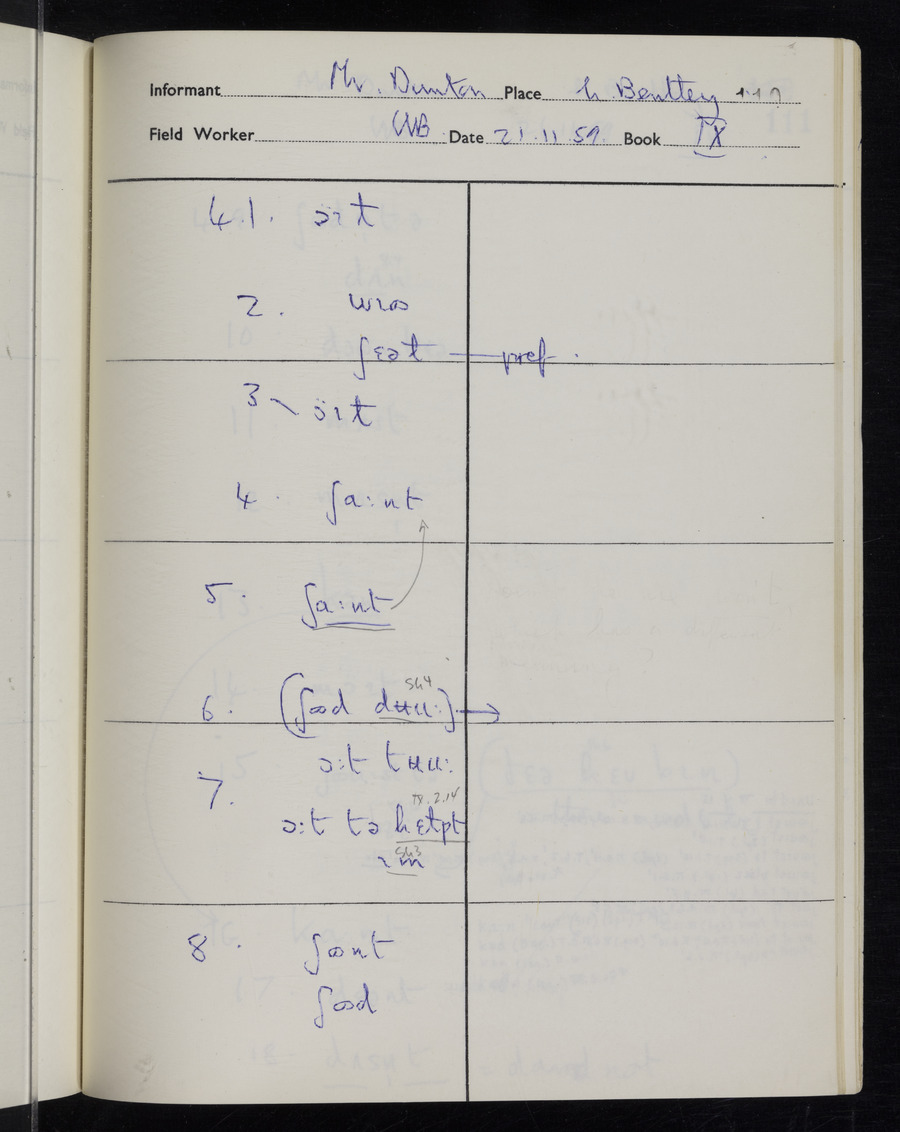 Informant Mr. Dunton Place L. Bentley
Field Worker WB Date 21.11.59. Book IX
4.1. ɔːt
2. wɪəs
ʃɛət — pref.
3 ɔːt
4. ʃaːnt
5. ʃaːnt
6. (ʃʊd dʉuː) →
ɔːt tʉuː
7. ɔːt tə
8. ʃʊnt
ʃʊd